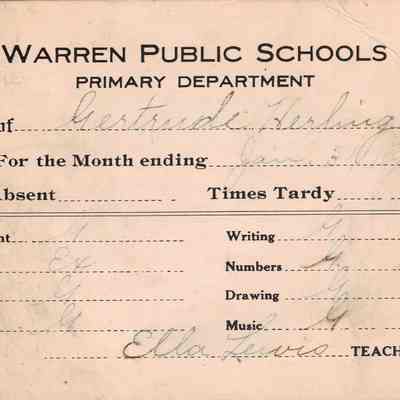 WARREN PUBLIC SCHOOLS
PRIMARY DEPARTMENT
of Gertrude Herling
For the Month ending Jan. 30
Absent Times Tardy
nt G Writing G
Ex Numbers G
G Drawing G
G Music G
Ella Lewis TEACH